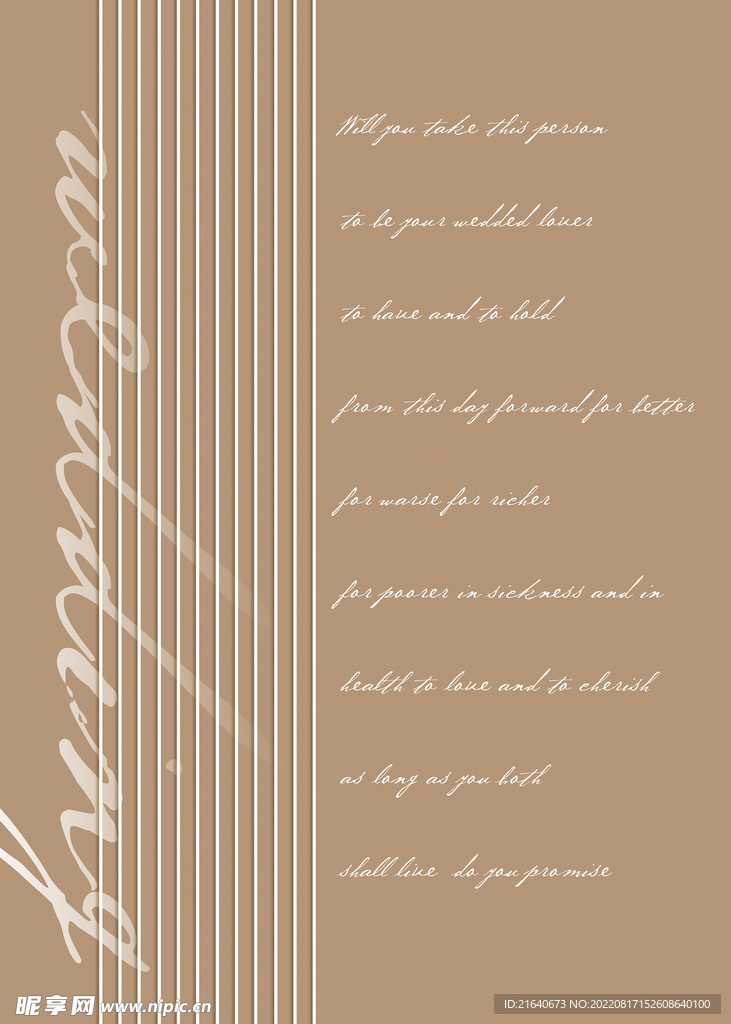 wedding
Will you take this person
to be your wedded lover
to have and to hold
from this day forward for better
for warse for richer
for poorer in sickness and in
health to love and to cherish
as long as you both
shall live do you promise
昵享网 www.nipic.cn
ID:21640673 NO:20220817152608640100